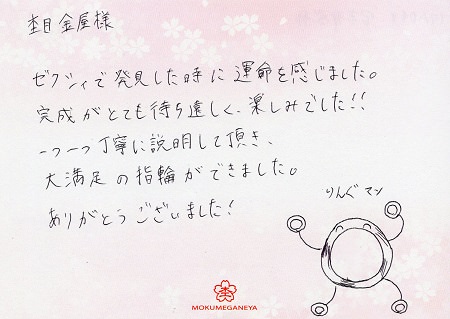 杢目金屋様
ゼクシィで発見した時に運命を感じました。
完成がとても待ち遠しく、楽しみでした!!
一つ一つ丁寧に説明して頂き、
大満足の指輪ができました。
ありがとうございました!
りんぐマン
MOKUMEGANEYA